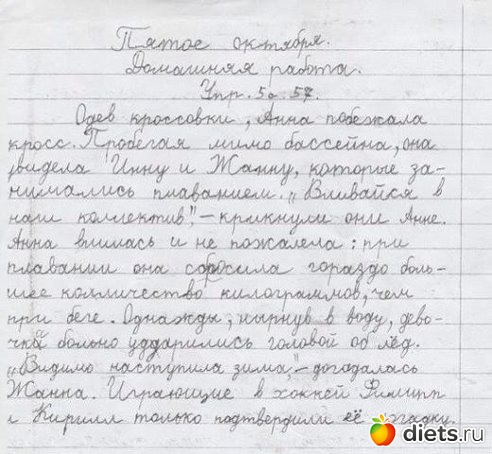 Пятое октября.
Домашняя работа.
Упр. 5о 57.
Одев кроссовки, Анна побежала
кросс. Пробегая мимо бассейна, она
увидела Инну и Жанну, которые за-
нимались плаванием. „Вливайся в
наш коллектив", – крикнули они Анне.
Анна влилась и не пожалела: при
плавании она сбросила гораздо боль-
шее колличество килограммов, чем
при беге. Однажды, нырнув в воду, дево-
чка больно ударились головой об лёд.
„Видимо наступила зима," – догадалась
Жанна. Играющие в хоккей Филипп
и Кирилл только подтвердили её догадку.
diets.ru